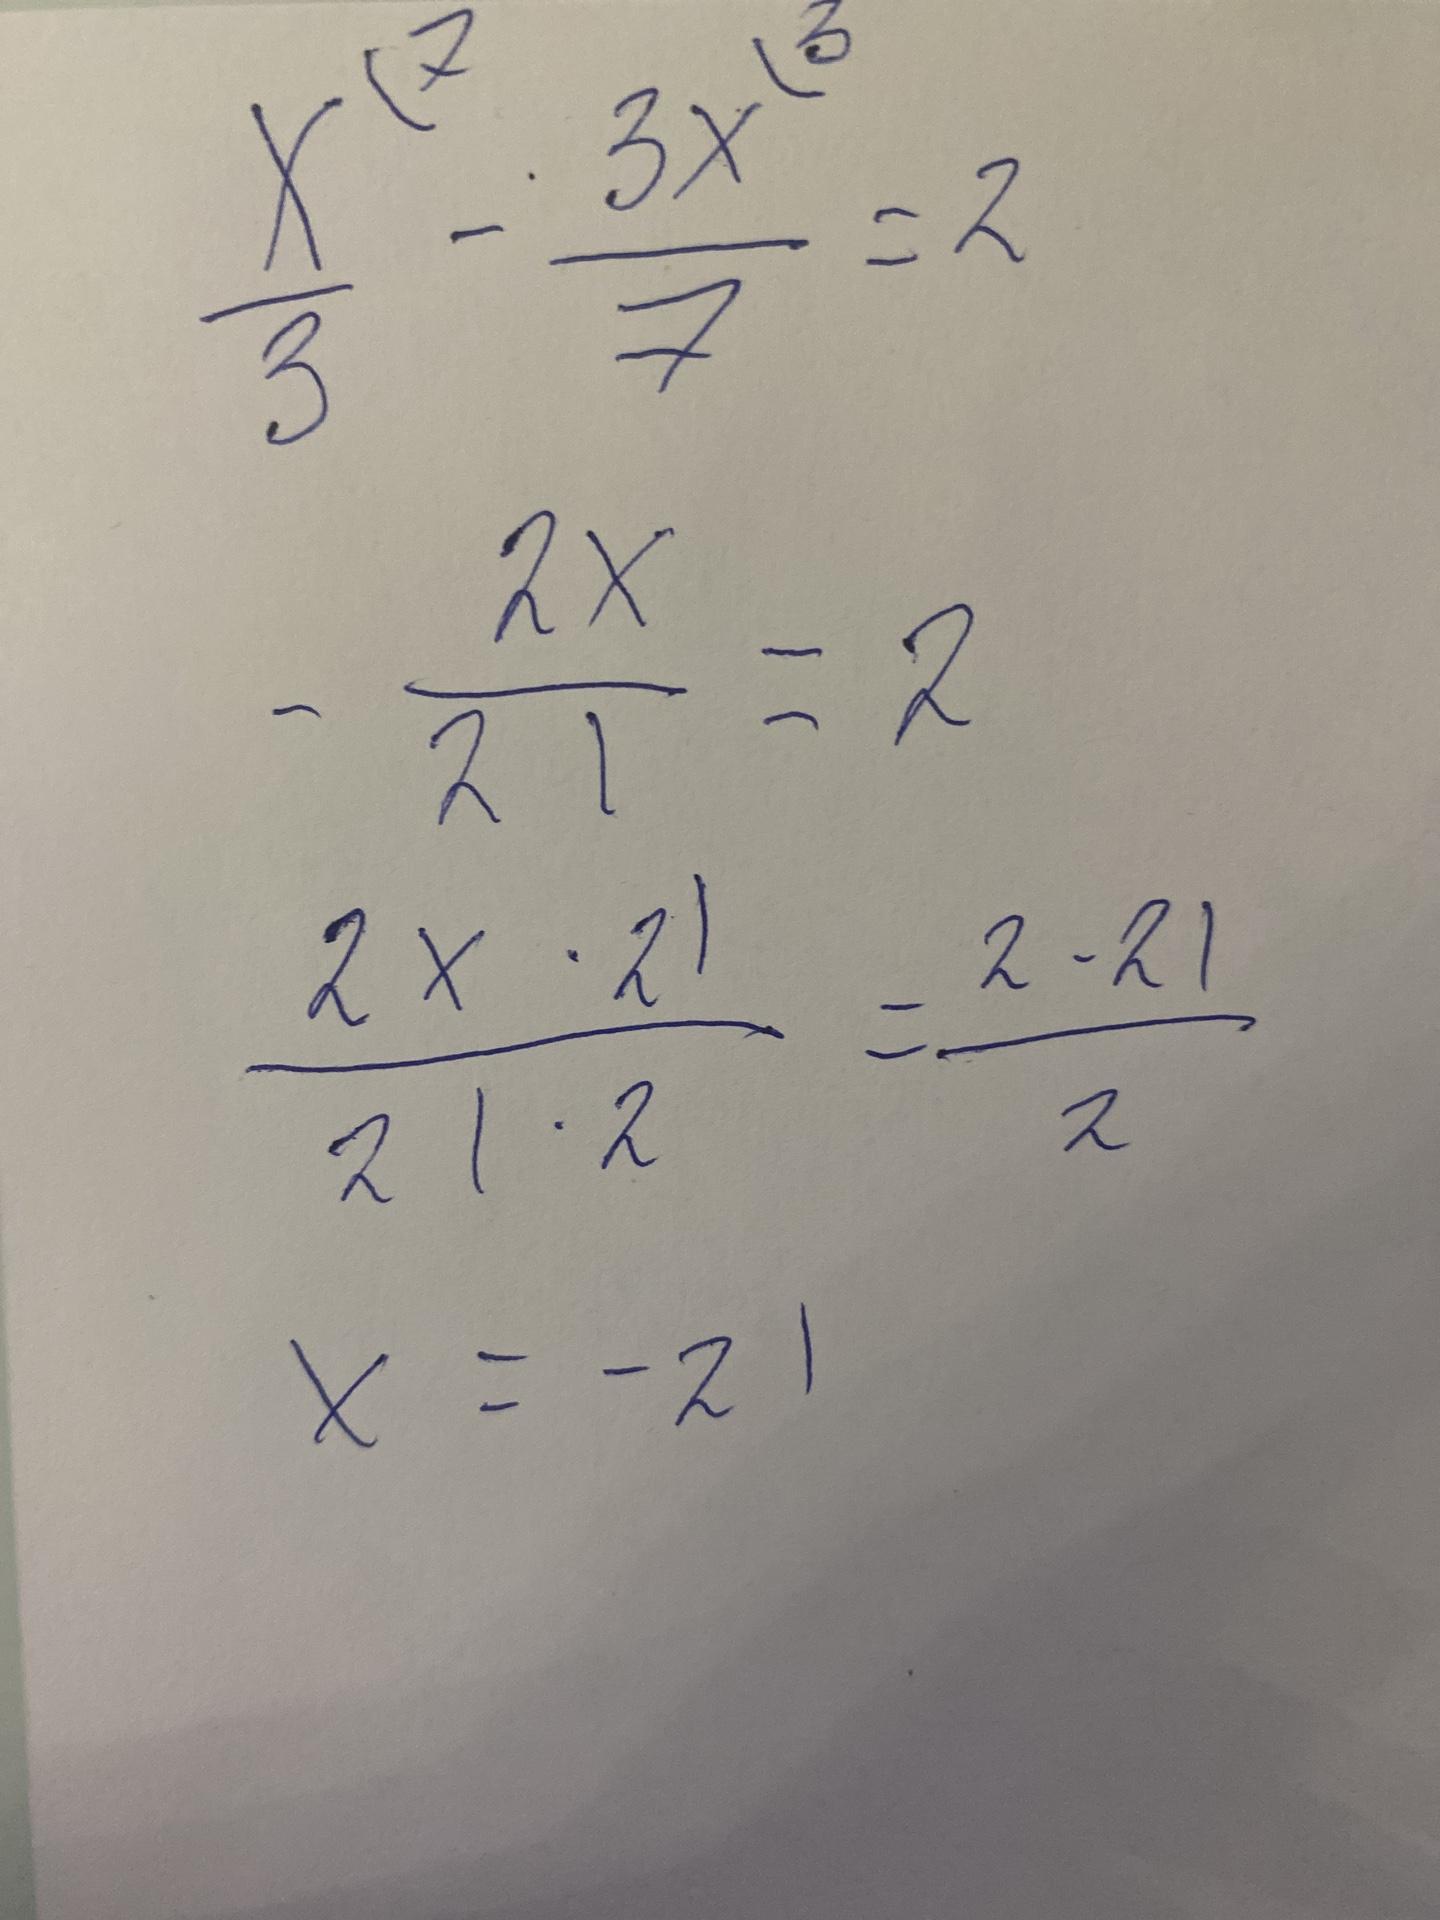 x⁽⁷/3 - 3x⁽³/7 = 2
- 2x/21 = 2
2x · 21/21 · 2 = 2 - 21/2
x = -21